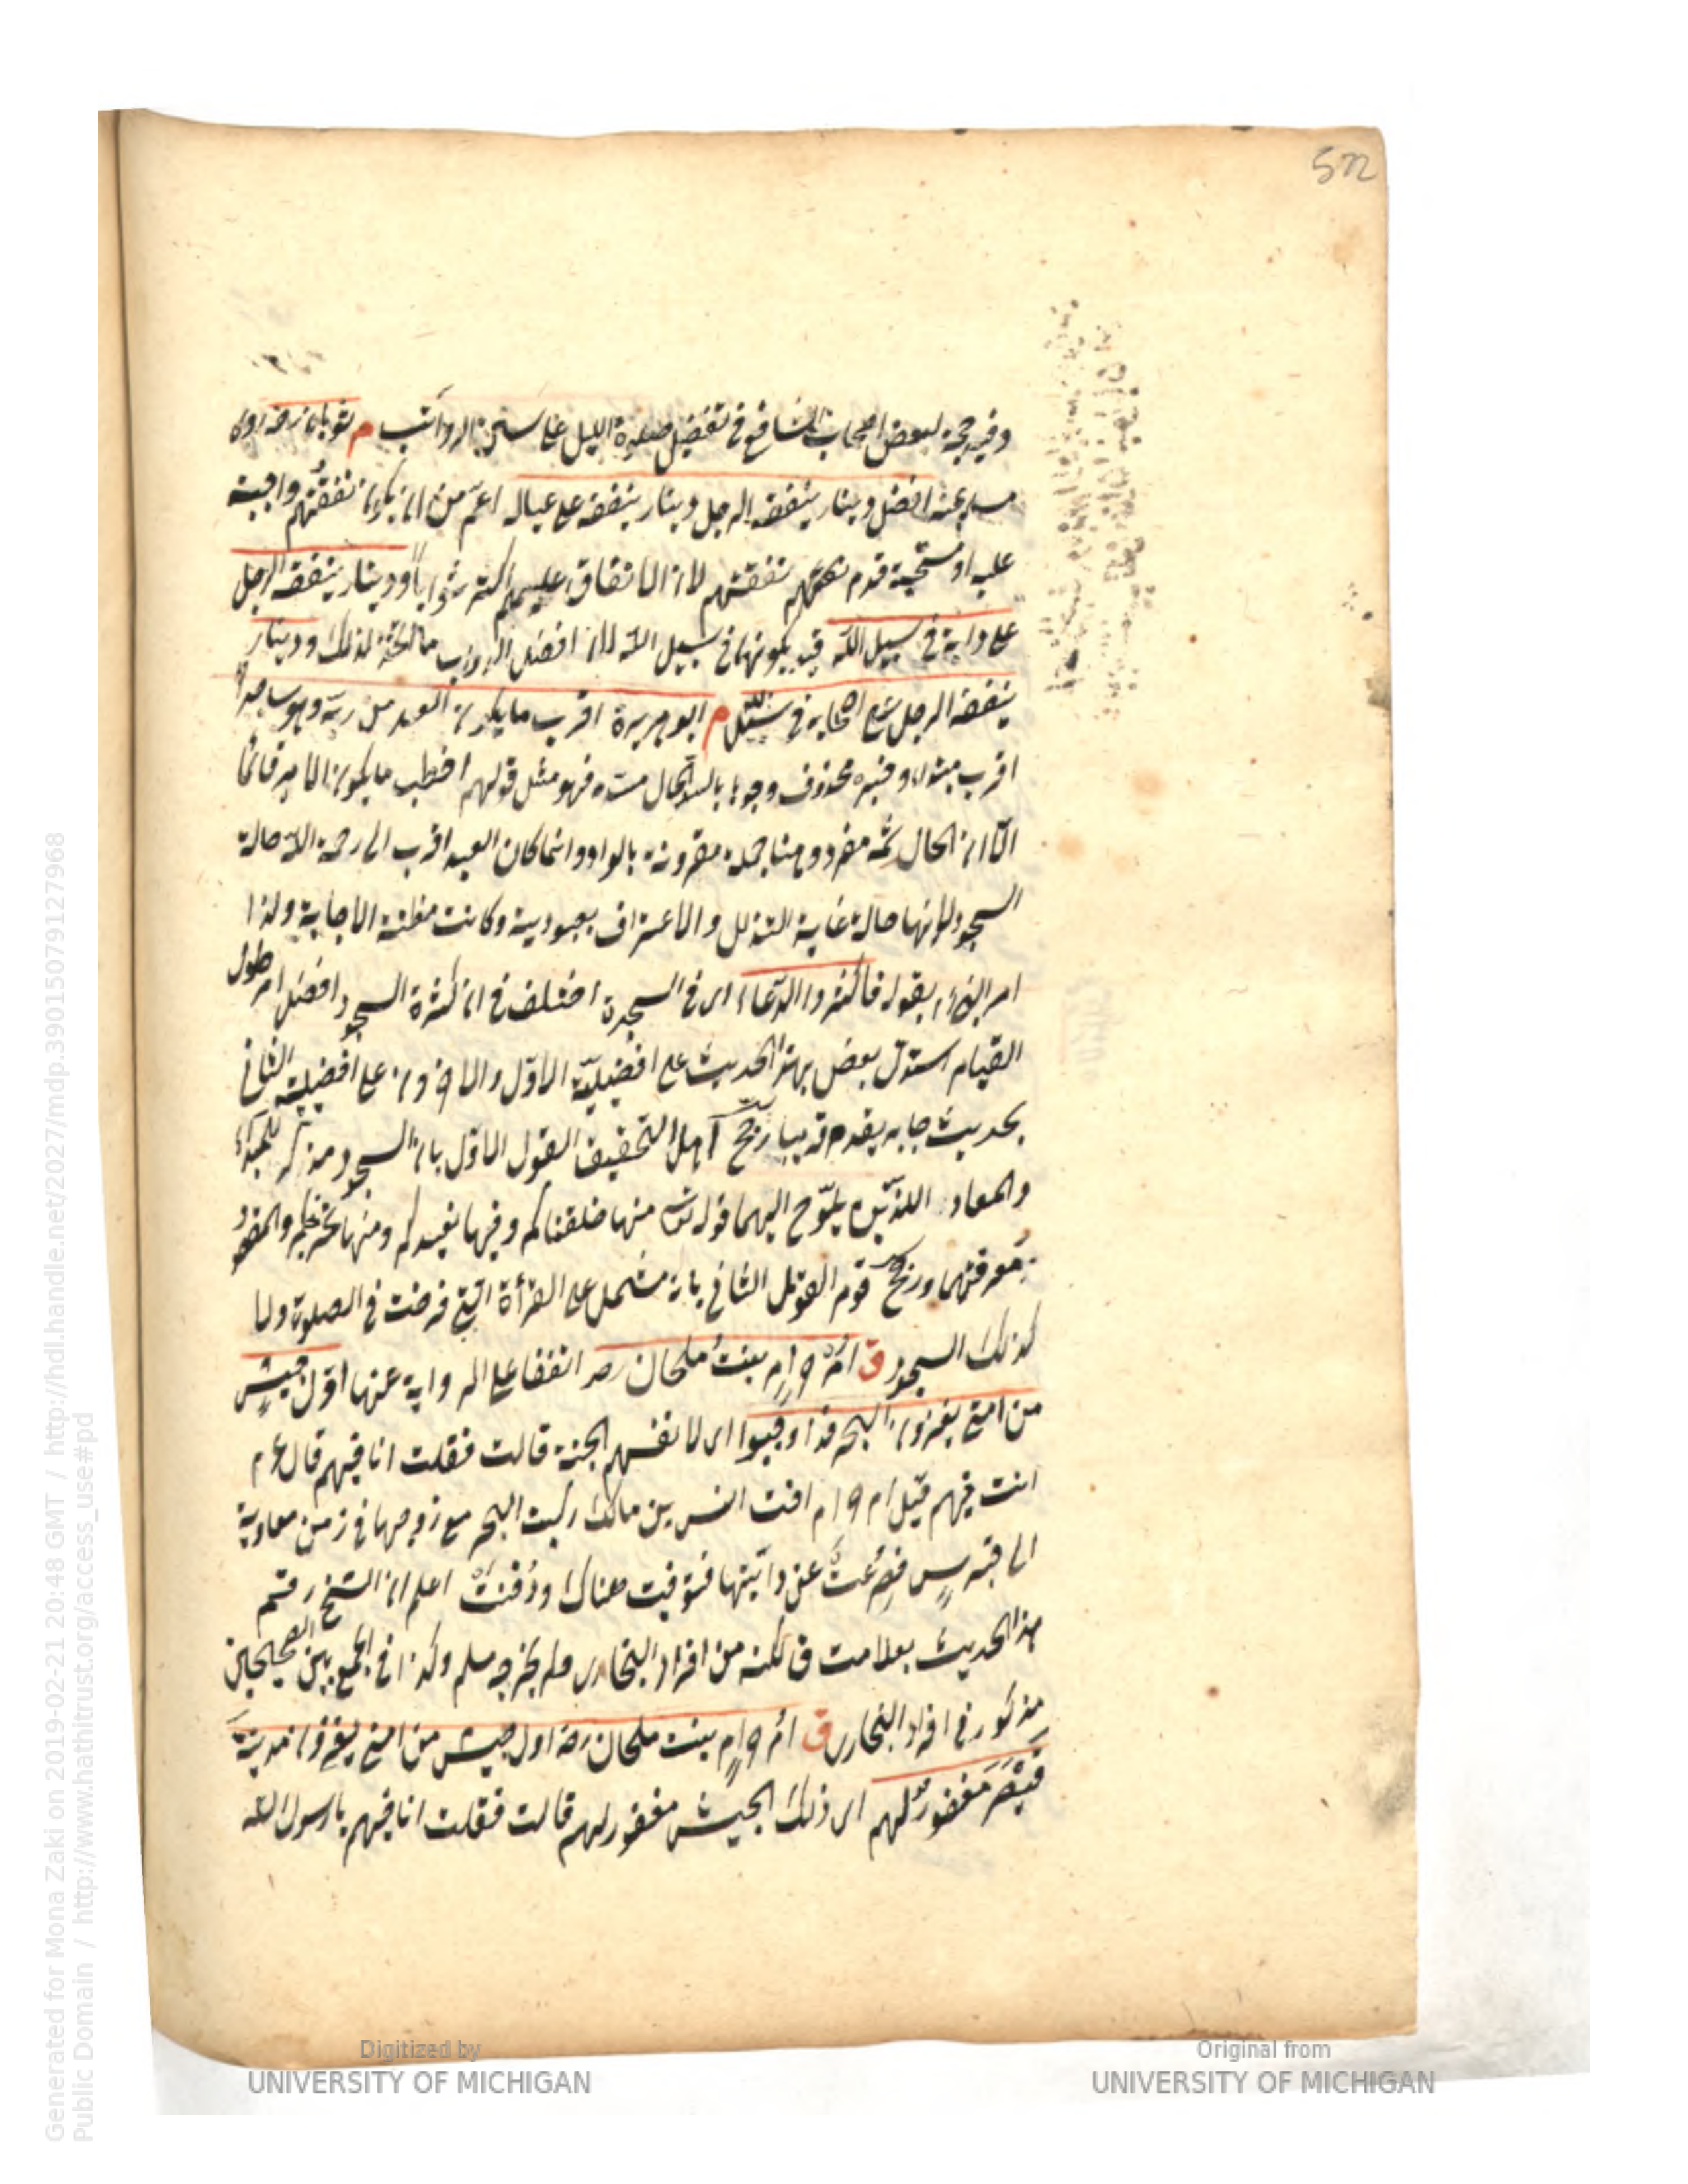 522
وفيه حجة لبعض اصحاب الشافعي في تفضيل صلوة الليل على سنن الرواتب م ثوبان رضه روى
مسلم عنه افضل دينار ينفقه الرجل دينار ينفقه على عياله اعم من ان يكون نفقتهم واجبة
عليه او مستحبة قدم نفقتهم لان الانفاق عليهم اكثر ثوابا ودينار ينفقه الرجل
على دابة في سبيل الله قيد بكونها في سبيل الله لان افضل الدواب ما لذلك ودينار
ينفقه الرجل على اصحابه في سبيل الله م ابو هريرة اقرب ما يكون العبد من ربه وهو ساجد
اقرب مبتداء وخبره محذوف وجوبا لسد الحال مسده فهو مثل قولهم اخطب ما يكون الامير قائما
الا ان الحال ثمه مفرد وهنا جملة مقرونة بالواو وانما كان العبد اقرب الى رحمة الله حالة
السجود لانها حالة غاية التذلل والاعتراف بعبودية وكانت مظنة الاجابة ولذا
امر النبي بقوله فاكثروا الدعاء اى في السجدة اختلف في ان كثرة السجود افضل ام طول
القيام استدل بعض بهذا الحديث على افضلية الاول والاخرون على افضلية الثاني
بحديث جابر يقدم قريبا رجح اهل التحقيق القول الاول بان السجود مذكر للمبداء
والمعاد اللذين يلوح اليهما قوله تع منها خلقناكم وفيها نعيدكم ومنها نخرجكم والمقصود
معرفتهما ورجح قوم القول الثاني بانه مشتمل على القرأة التي فرضت في الصلوة ولا
كذلك السجود ق ام حرام بنت ملحان رضه اتفقا على الرواية عنها اول جيش
من امتي يغزون البحر قد اوجبوا اى لانفسهم الجنة قالت فقلت انا فيهم قال عم
انت فيهم قيل ام حرام اخت انس بن مالك ركبت البحر مع زوجها في زمن معاوية
الى قبرس فصرعت عن دابتها فتوفيت هناك ودفنت اعلم ان الشيخ رقم
هذا الحديث بعلامت ق لكنه من افراد البخارى ولم يخرجه مسلم وكذا في الجمع بين الصحيحين
مذكور في افراد البخارى ق ام حرام بنت ملحان رضه اول جيش من امتي يغزون مدينة
قيصر مغفور لهم اى ذلك الجيش مغفور لهم قالت فقلت انا فيهم يا رسول الله
Generated for Mona Zaki on 2019-02-21 20:48 GMT / http://hdl.handle.net/2027/mdp.39015079127968
Public Domain / http://www.hathitrust.org/access_use#pd
Digitized by
UNIVERSITY OF MICHIGAN
Original from
UNIVERSITY OF MICHIGAN